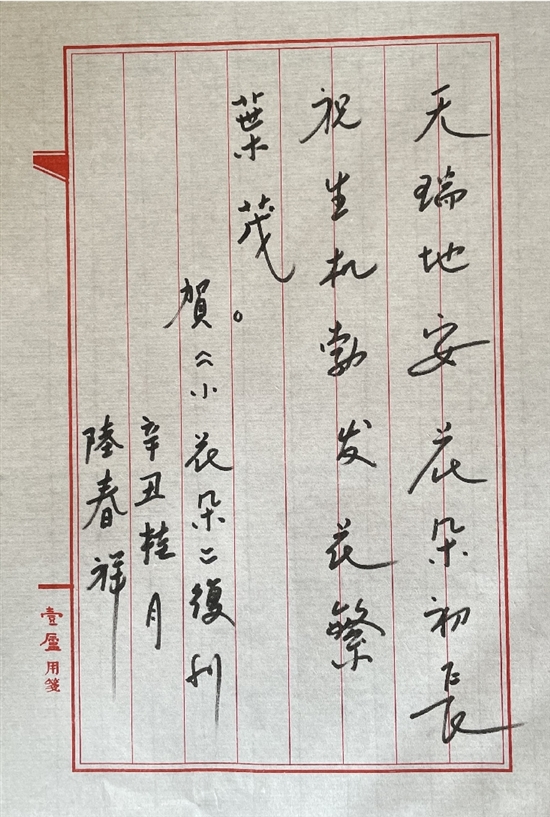 天瑞地安花朵初長
祝生机勃发花繁
葉茂。
賀《小花朵》復刊
辛丑桂月
陸春祥
壹廬用箋